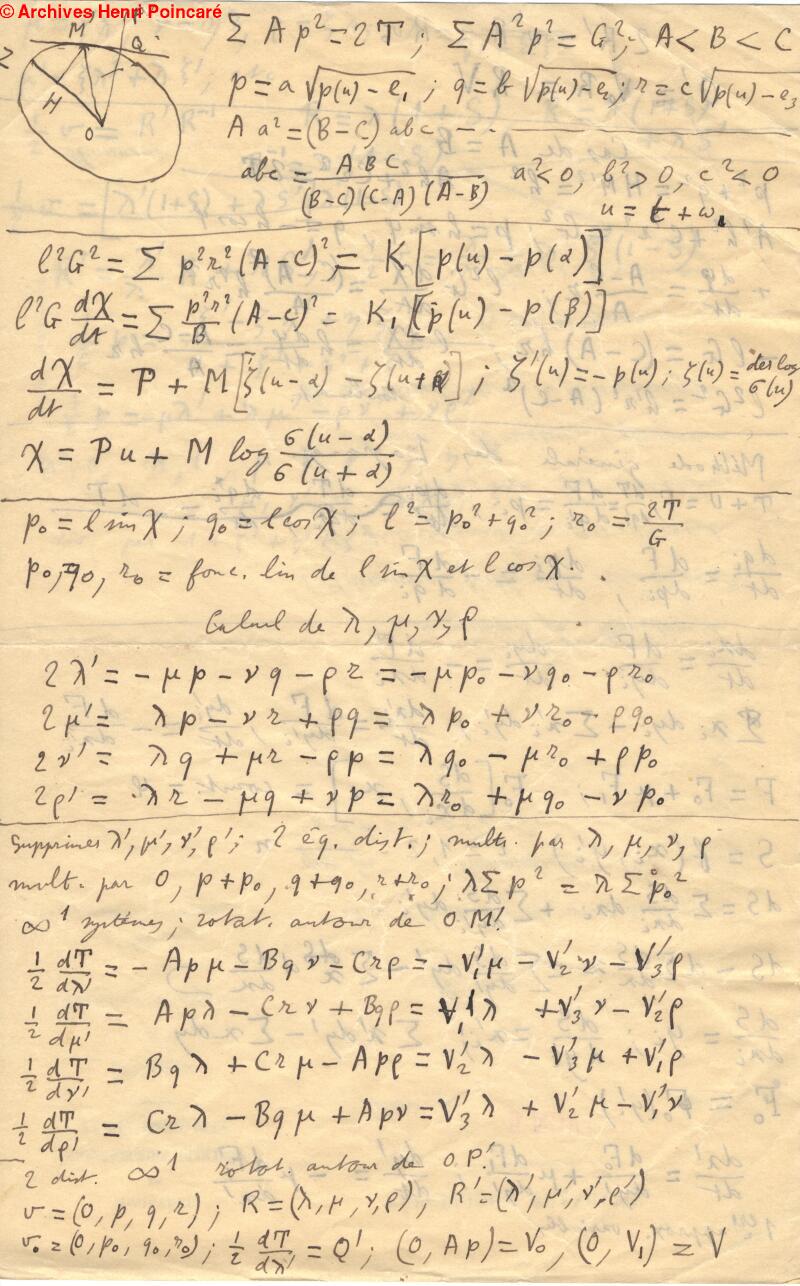 © Archives Henri Poincaré
M P Q
Z H O
Σ A p² = 2T ; Σ A² p² = G² ; A < B < C
p = a √(p(u) − e₁) ; q = b √(p(u) − e₂) ; r = c √(p(u) − e₃)
A a² = (B − C) abc — . ———
abc = ABC / (B−C)(C−A)(A−B) a² < 0, b² > 0, c² < 0
u = t + ω₁
l²G² = Σ p²r² (A−C)² = K [p(u) − p(α)]
l²G dχ/dt = Σ p²r²/B (A−C)² = K₁ [p(u) − p(β)]
dχ/dt = P + M [ζ(u−α) − ζ(u+α)] ; ζ'(u) = −p(u) ; ζ(u) = der log σ(u)
χ = Pu + M log σ(u−α)/σ(u+α)
p₀ = l sin χ ; q₀ = l cos χ ; l² = p₀² + q₀² ; r₀ = 2T/G
p₀, q₀, r₀ = fonc. lin de l sin χ et l cos χ.
Calcul de λ, μ, ν, ρ
2λ' = −μp − νq − ρr = −μp₀ − νq₀ − ρr₀
2μ' = λp − νr + ρq = λp₀ + νr₀ − ρq₀
2ν' = λq + μr − ρp = λq₀ − μr₀ + ρp₀
2ρ' = λr − μq + νp = λr₀ + μq₀ − νp₀
Supprimes λ', μ', ν', ρ' ; 2 éq. dist. ; mult. par λ, μ, ν, ρ
mult. par 0, p+p₀, q+q₀, r+r₀ ; λΣp² = λΣp₀²
∞¹ systèmes ; rotat. autour de OM'.
½ dT/dλ' = −Apμ − Bqν − Crρ = −V₁'μ − V₂'ν − V₃'ρ
½ dT/dμ' = Apλ − Crν + Bqρ = V₁'λ + V₃'ν − V₂'ρ
½ dT/dν' = Bqλ + Crμ − Apρ = V₂'λ − V₃'μ + V₁'ρ
½ dT/dρ' = Crλ − Bqμ + Apν = V₃'λ + V₂'μ − V₁'ν
2 dist. ∞¹ rotat. autour de OP'.
v = (0, p, q, r) ; R = (λ, μ, ν, ρ), R' = (λ', μ', ν', ρ')
v₀ = (0, p₀, q₀, r₀) ; ½ dT/dλ' = Q' ; (0, Ap) = V₀, (0, V₁) = V